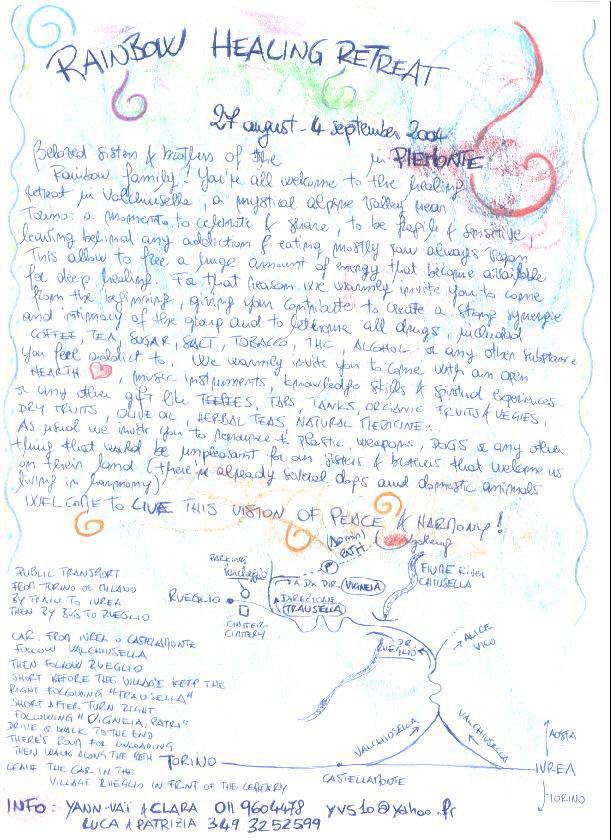 RAINBOW HEALING RETREAT
27 august - 4 september 2004
Beloved sisters & brothers of the in PIEMONTE
Rainbow family! You're all welcome to the healing
retreat in Valchiusella, a mystical alpine valley near
Torino: a moment to celebrate & share, to be fragile & sensitive,
leaving behind any addiction & eating mostly raw always vegan
This allow to free a huge amount of energy that become available
for deep healing. For that reason we warmly invite you to come
from the beginning, giving your contribute to create a strong synergie
and intimacy of the group and to leave all drugs, included
COFFEE, TEA, SUGAR, SALT, TOBACCO, THC, ALCOHOL or any other substance
you feel addict to. We warmly invite you to come with an open
HEARTH, music instruments, knowledge skills & spiritual experiences
or any other gift like TEEPEES, TARPS, TANKS, ORGANIC FRUITS & VEGIES,
DRY FRUITS, OLIVE OIL, HERBAL TEAS, NATURAL MEDICINE...
As usual we invite you to renounce to plastic, weapons, DOGS or any other
thing that would be unpleasant for our sisters & brothers that welcome us
on their land (there's already several dogs and domestic animals
living in harmony)
WELCOME TO LIVE THIS VISION OF PEACE & HARMONY!
PUBLIC TRANSPORT
FROM TORINO OR MILANO
BY TRAIN TO IVREA
THEN BY BUS TO RUEGLIO
CAR. FROM IVREA O CASTELLAMONTE
FOLLOW VALCHIUSELLA
THEN FOLLOW RUEGLIO
SHORT BEFORE THE VILLAGE KEEP THE
RIGHT FOLLOWING "TRAUSELLA"
SHORT AFTER TURN RIGHT
FOLLOWING "VIGNEIA, PATRI"
DRIVE & WALK TO THE END
THERE'S ROOM FOR UNLOADING
THEN WALK ALONG THE PATH
LEAVE THE CAR IN THE
VILLAGE RUEGLIO IN FRONT OF THE CEMETERY
PARKING
Parcheggio
RUEGLIO
PATH
A DX DIR. VIGNEIA
DIREZIONE
TRAUSELLA
FIUME River
CHIUSELLA
DIR
RUEGLIO
ALICE
VICO
VALCHIUSELLA
VALCHIUSELLA
TORINO
CASTELLAMONTE
AOSTA
IVREA
TORINO
INFO: YANN-VAI & CLARA 011 9604478 yvs10@yahoo.fr
LUCA & PATRIZIA 349 3252599